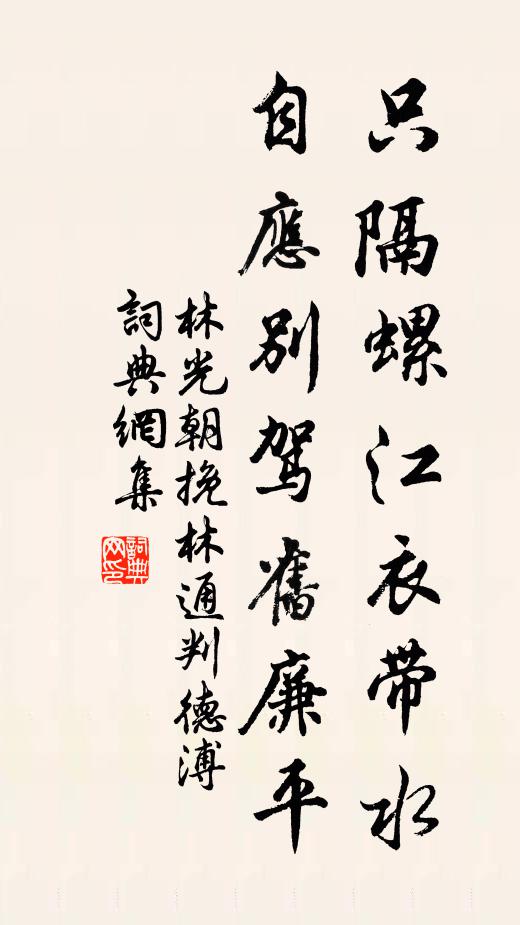 只隔螺江衣帶水
自應別駕舊廉平
林光朝挽林通判德溥
詞典網集
詞典网印